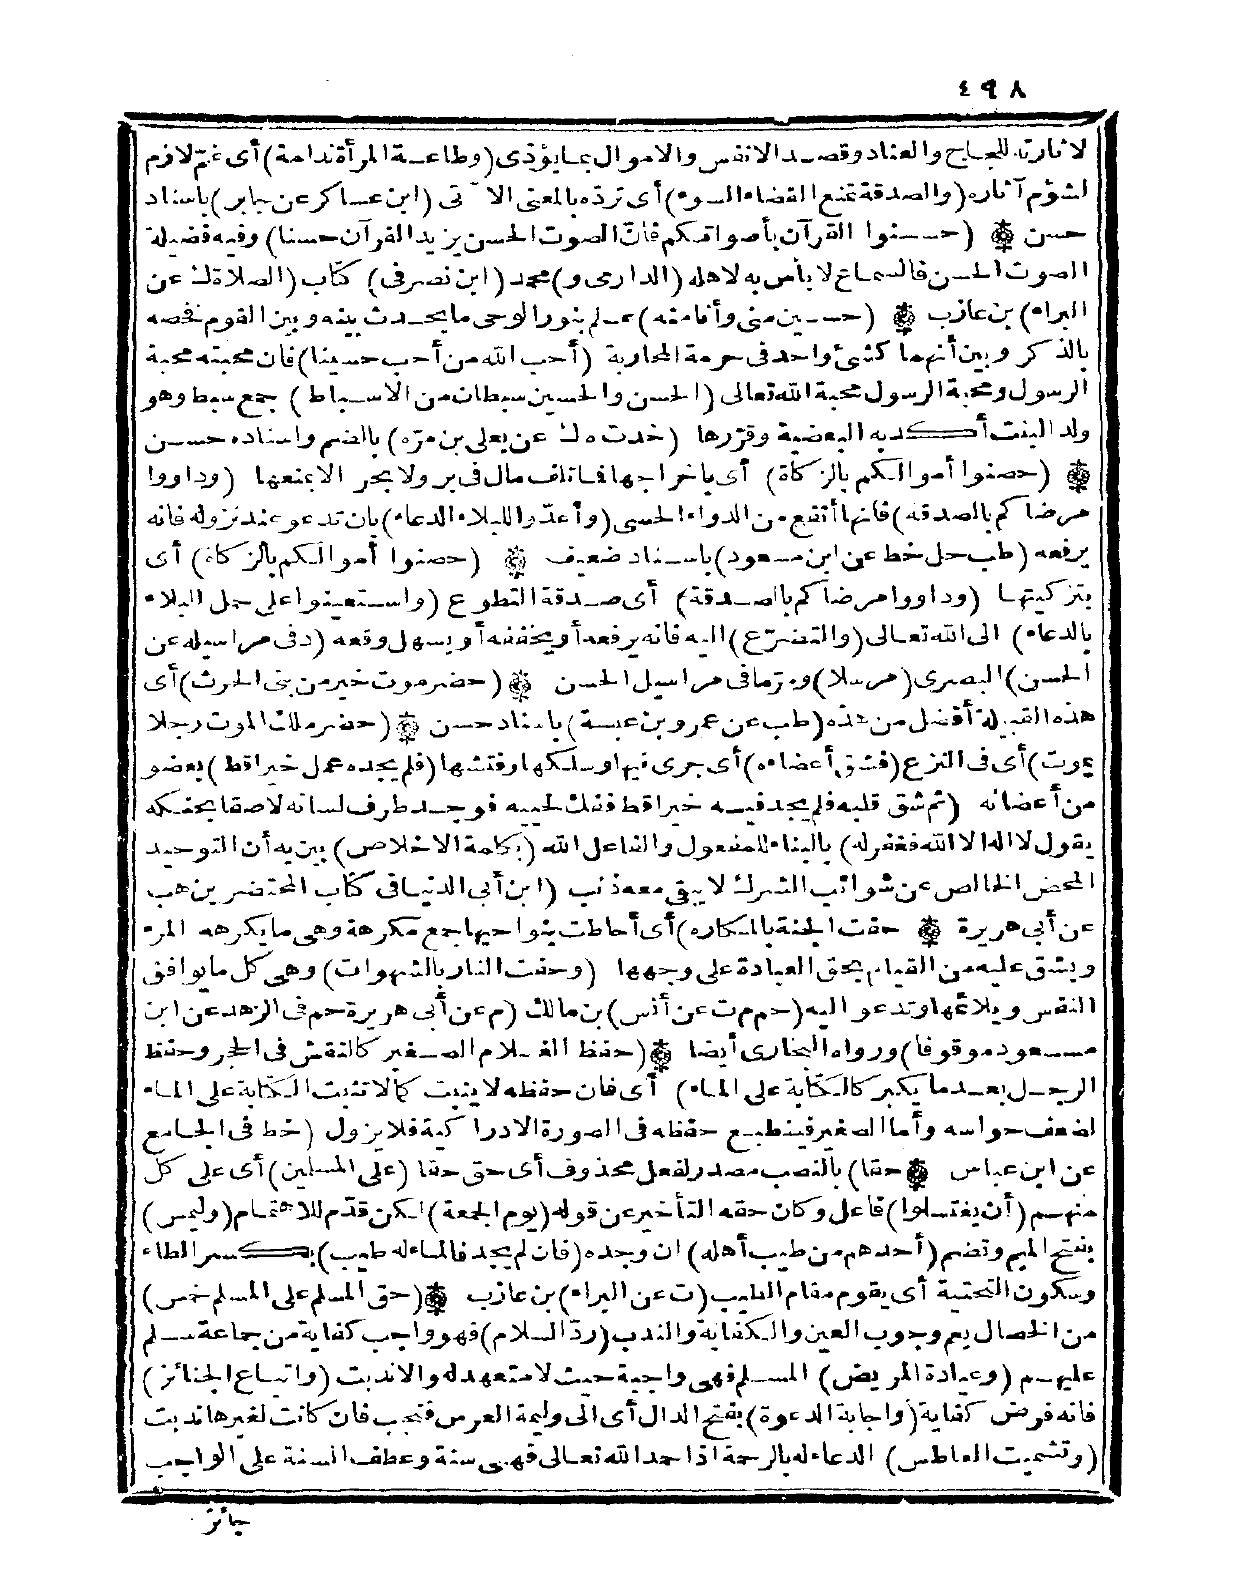 ٤٩٨
لاثارته للجاج والعناد وقصد الانفس والاموال بما يؤذى (وطاعة المرأة ندامة) أى غم لازم
لشؤم آثاره (والصدقة تمنع القضاء السوء) أى تردّه بالمعنى الآتى (ابن عساكر عن جابر) باسناد
حسن ۞ (حسنوا القرآن بأصواتكم فانّ الصوت الحسن يزيد القرآن حسنا) وفيه فضيلة
الصوت الحسن فالسماع لا بأس به لاهله (الدارى و) محمد (ابن نصر فى) كتاب (الصلاة ك عن
البراء) بن عازب ۞ (حسين منى وأنا منه) علم بنور الوحى ما يحدث بينه وبين القوم فخصه
بالذكر وبين أنهما كشئ واحد فى حرمة المحاربة (أحب الله من أحب حسينا) فان محبته محبة
الرسول ومحبة الرسول محبة الله تعالى (الحسن والحسين سبطان من الاسباط) جمع سبط وهو
ولد البنت أكد به البعضية وقرّرها (خدت ه ك عن يعلى بن مرّه) بالضم واسناده حسن
۞ (حصنوا أموالكم بالزكاة) أى باخراجها فما تلف مال فى بر ولا بحر الا بمنعها (وداووا
مرضاكم بالصدقه) فانها أنفع من الدواء الحسى (وأعدّوا للبلاء الدعاء) بان تدعو عند نزوله فانه
يرفعه (طب حل خط عن ابن مسعود) باسناد ضعيف ۞ (حصنوا أموالكم بالزكاة) أى
بتزكيتها (وداووا مرضاكم بالصدقة) أى صدقة التطوع (واستعينوا على حمل البلاء
بالدعاء) الى الله تعالى (والتضرّع) اليه فانه يرفعه أو يخففه أو يسهل وقعه (د فى مراسيله عن
الحسن) البصرى (مرسلا) وهذا فى مراسيل الحسن ۞ (حضرموت خير من بنى الحرث) أى
هذه القبيلة أفضل من هذه (طب عن عمرو بن عبسة) باسناد حسن ۞ (حضر ملك الموت رجلا
يموت) أى فى النزع (فشق أعضاءه) أى جرى فيها وسلكها وفتشها (فلم يجده عمل خيرا قط) بعضو
من أعضائه (ثم شق قلبه فلم يجد فيه خيرا قط ففك لحييه فوجد طرف لسانه لاصقا بحنكه
يقول لا اله الا الله فغفر له) بالبناء للمفعول والفاعل الله (بكلمة الاخلاص) بين به أن التوحيد
المحض الخالص عن شوائب الشرك لا يبقى معه ذنب (ابن أبى الدنيا فى كتاب المحتضرين هب
عن أبى هريرة ۞ حفت الجنة بالمكاره) أى أحاطت بنواحيها جمع مكرهة وهى ما يكرهه المرء
ويشق عليه من القيام بحق العبادة على وجهها (وحفت النار بالشهوات) وهى كل ما يوافق
النفس ويلائمها وتدعو اليه (حم م ت عن أنس) بن مالك (م عن أبى هريرة حم فى الزهد عن ابن
مسعود موقوفا) ورواه البخارى أيضا ۞ (حفظ الغلام الصغير كالنقش فى الحجر وحفظ
الرجل بعد ما يكبر كالكتابة على الماء) أى فان حفظه لا يثبت كما لا تثبت الكتابة على الماء
لضعف حواسه وأما الصغير فينطبع حفظه فى الصورة الادراكية فلا يزول (خط فى الجامع
عن ابن عباس ۞ حقا) بالنصب مصدر لفعل محذوف أى حق حقا (على المسلمين) أى على كل
منهم (أن يغتسلوا) فاعل وكان حقه التأخير عن قوله (يوم الجمعة) لكن قدّم للاهتمام (وليمس)
بفتح الميم وتضم (أحدهم من طيب أهله) ان وجده (فان لم يجد فالماء له طيب) بكسر الطاء
وسكون التحتية أى يقوم مقام الطيب (ت عن البراء) بن عازب ۞ (حق المسلم على المسلم خمس)
من الخصال يعم وجوب العين والكفاية والندب (ردّ السلام) فهو واجب كفاية من جماعة سلم
عليهم (وعيادة المريض) المسلم فهى واجبة حيث لا متعهد له والا ندبت (واتباع الجنائز)
فانه فرض كفاية (واجابة الدعوة) بفتح الدال أى الى وليمة العرس فتجب فان كانت لغيرها ندبت
(وتشميت العاطس) الدعاء له بالرحمة اذا حمد الله تعالى فهى سنة وعطف السنة على الواجب
جائز